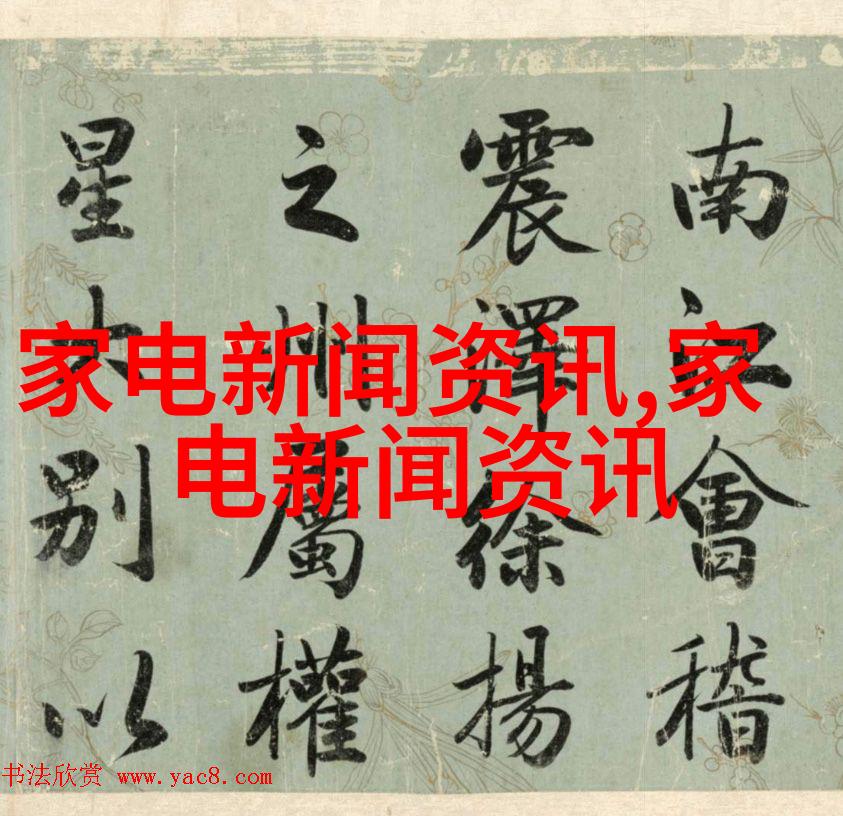 南江會稽
震澤徐揚
之州屬權
星大別以
家电新闻资讯,家
电新闻资讯
书法欣赏 www.yac8.com